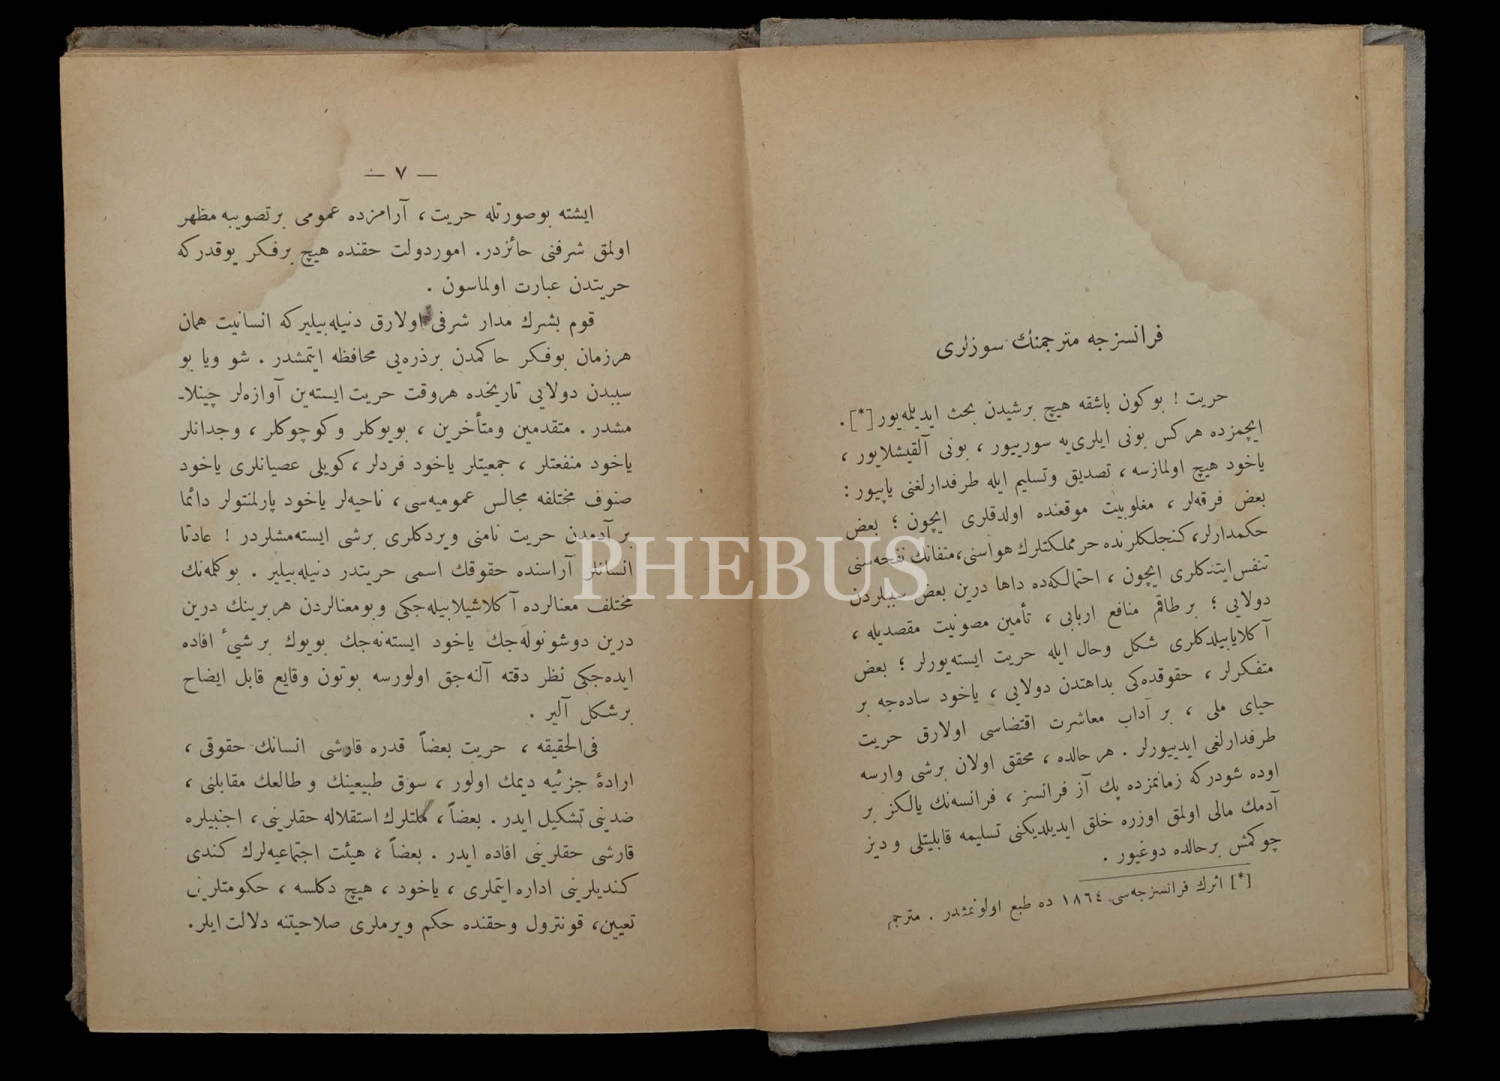 فرانسزجه مترجمنك سوزلری
حریت ! بوكون باشقه هیچ برشیدن بحث ایدیله‌یور [*] .
ایچمزده هركس بونی ایلری‌یه سورییور ، بونی آلقیشلایور ،
یاخود هیچ اولمازسه ، تصدیق وتسلیم ایله طرفدارلغنی یاپیور :
بعض فرقه‌لر ، مغلوبیت موقعنده اولدقلری ایچون ؛ بعض
حكمدارلر، كنجلكلرنده حر مملكتلرك هواسنی، متفانك نفحه‌سنی
تنفس ایتدكلری ایچون ، احتمالكه‌ده داها درین بعض سببلردن
دولایی ؛ بر طاقم منافع اربابی ، تأمین مصونیت مقصدیله ،
آكلایابیلدكلری شكل وحال ایله حریت ایسته‌یورلر ؛ بعض
متفكرلر ، حقوقده‌كی بداهتدن دولایی ، یاخود ساده‌جه بر
حیای ملی ، بر آداب معاشرت اقتضاسی اولارق حریت
طرفدارلغی ایدییورلر . هر حالده ، محقق اولان برشی وارسه
اوده شودركه زمانمزده پك آز فرانسز ، فرانسه‌نك یالكز بر
آدمك مالی اولمق اوزره خلق ایدیلدیكنی تسلیمه قابلیتلی و دیز
چوكمش برحالده دوغیور .
[*] اثرك فرانسزجه‌سی ١٨٦٤ ده طبع اولونمشدر . مترجم
— ٧ —
ایشته بوصورتله حریت ، آرامزده عمومی برتصویبه مظهر
اولمق شرفنی حائزدر. اموردولت حقنده هیچ برفكر یوقدركه
حریتدن عبارت اولماسون .
قوم بشرك مدار شرفی اولارق دنیله‌بیلیركه انسانیت همان
هرزمان بوفكر حاكمدن برذره‌یی محافظه ایتمشدر . شو ویا بو
سببدن دولایی تاریخده هروقت حریت ایسته‌ین آوازه‌لر چینلا-
مشدر . متقدمین ومتأخرین ، بویوكلر وكوچوكلر ، وجدانلر
یاخود منفعتلر ، جمعیتلر یاخود فردلر ، كویلی عصیانلری یاخود
صنوف مختلفه مجالس عمومیه‌سی ، ناحیه‌لر یاخود پارلمنتولر دائما
بر آدمدن حریت نامنی ویردكلری برشی ایسته‌مشلردر ! عادتا
انسانلر آراسنده حقوقك اسمی حریتدر دنیله‌بیلیر . بوكله‌نك
مختلف معنالرده آكلاشیلابیله‌جكی وبومعنالردن هربرینك درین
درین دوشونوله‌جك یاخود ایسته‌نه‌جك بویوك برشیٴ افاده
ایده‌جكی نظر دقته آلنه‌جق اولورسه بوتون وقایع قابل ایضاح
برشكل آلیر .
فی‌الحقیقه ، حریت بعضاً قدره قارشی انسانك حقوقی ،
ارادهٔ جزئیه دیمك اولور ، سوق طبیعینك و طالعك مقابلنی ،
ضدینی تشكیل ایدر . بعضاً ، ملتلرك استقلاله حقلرینی ، اجنبیلره
قارشی حقلرینی افاده ایدر . بعضاً ، هیئت اجتماعیه‌لرك كندی
كندیلرینی اداره ایتملری ، یاخود ، هیچ دكلسه ، حكومتلرینی
تعیین، قونترول وحقنده حكم ویرملری صلاحیتنه دلالت ایلر.
PHEBUS